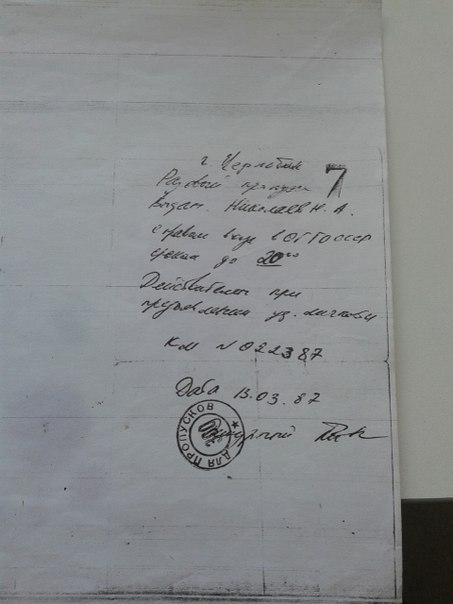 г. Чернобыль
Разовый пропуск 7
Выдан. Николаев Н. А.
с правом входа в
срока до 20⁰⁰
Действителен при
предъявлении уд. личности
КМ N 022387
Дата 13.03.87
Дежурный
ДЛЯ ПРОПУСКОВ